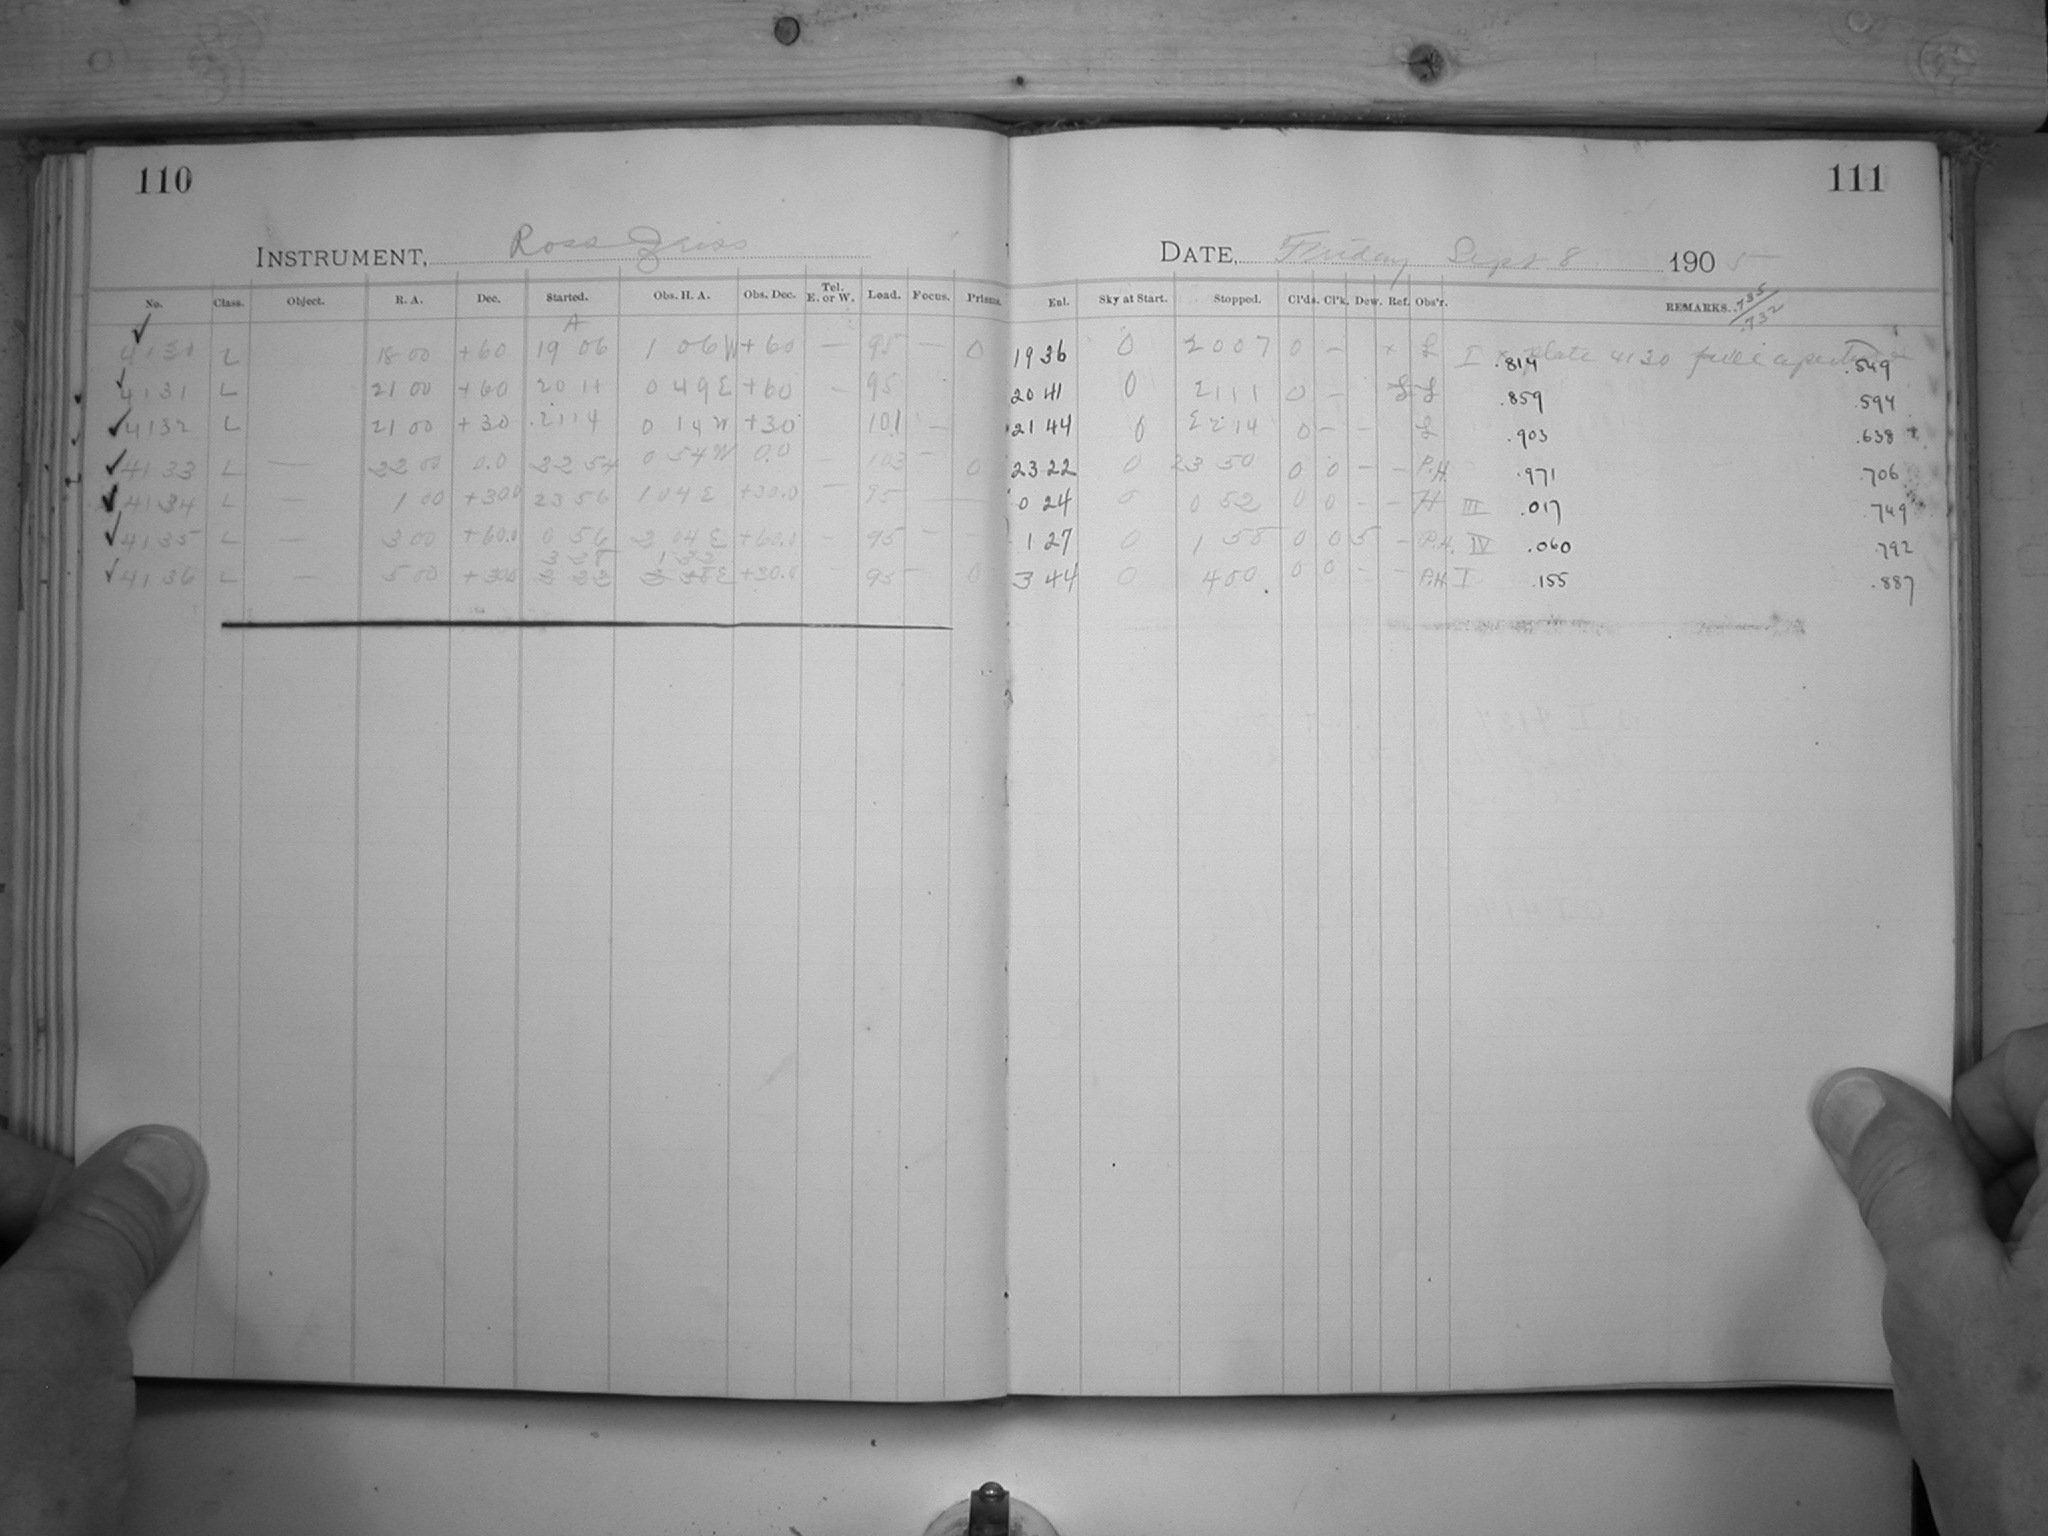 110
111
INSTRUMENT, Ross Zeiss
DATE, Friday Sept 8 1905
No. Class. Object. R. A. Dec. Started. Obs. H. A. Obs. Dec. Tel. E. or W. Load. Focus. Prisms. Enl. Sky at Start. Stopped. Cl'ds. Cl'k. Dew. Ref. Obs'r. REMARKS. .735/.732
A
4130 L 18 00 +60 19 06 1 06 W +60 — 95 — 0 19 36 0 2007 0 — x L I x plate 4130 full .814 .549
4131 L 21 00 +60 20 11 0 49 E +60 — 95 20 41 0 2111 0 — L L .859 .594
4132 L 21 00 +30 2114 0 14 W +30 101 — 21 44 0 2214 0 — — L .903 .638
4133 L — 22 00 0.0 22 54 0 54 W 0.0 — 103 — 0 23 22 0 23 50 0 0 — — P.H. .971 .706
4134 L — 1 00 +30.0 23 56 1 04 E +30.0 — 95 — 0 24 0 0 52 0 0 — — H III .017 .749
4135 L — 3 00 +60.0 0 56 2 04 E +60.0 — 95 — — 1 27 0 1 55 0 0 5 — P.H. IV .060 .792
3 28 1 32
4136 L — 5 00 +30.0 — 95 — 0 3 44 0 400 0 0 — — P.H. I .155 .887